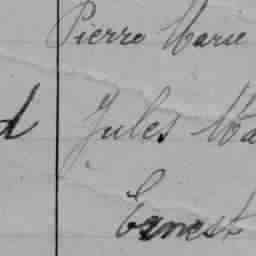 Pierre Marie
d Jules Ma
Ernest